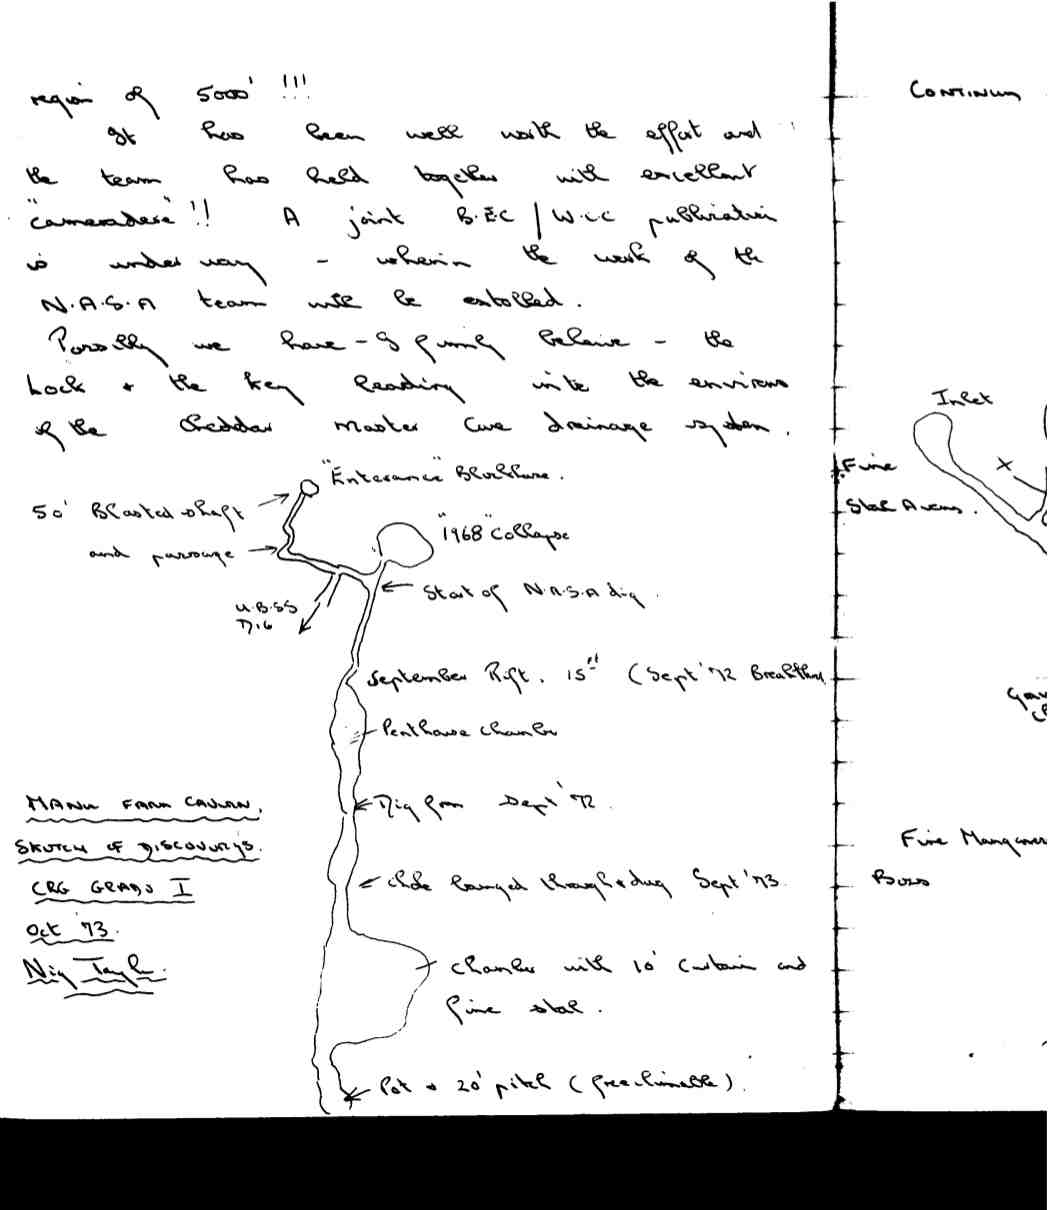 region of 5000' !!!
It has been well worth the effort and
the team has held together with excellent
"cameradere" !! A joint B.E.C / W.C.C publication
is under way - wherein the work of the
N.A.S.A team will be extolled.
Possibly we have - I firmly believe - the
Lock + the key leading into the environs
of the Cheddar Master Cave drainage system.
"Enterance" Blockhouse.
50' Blasted shaft
and passage
"1968" Collapse
Start of N.A.S.A dig
U.B.S.S
DIG
September Rift. 15th (Sept '72 Breakthru
Penthouse chamber
Dig from Sept '72
MANOR FARM CAVERN.
SKETCH OF DISCOVERYS.
CRG GRADE I
Oct '73.
Nig Taylor.
choke banged through + dug Sept '73.
chamber with 10' curtain and
fine stal.
Pot + 20' pitch (freeclimable).
CONTINUED
Inlet
Fine
Stal Avens.
X
Fine